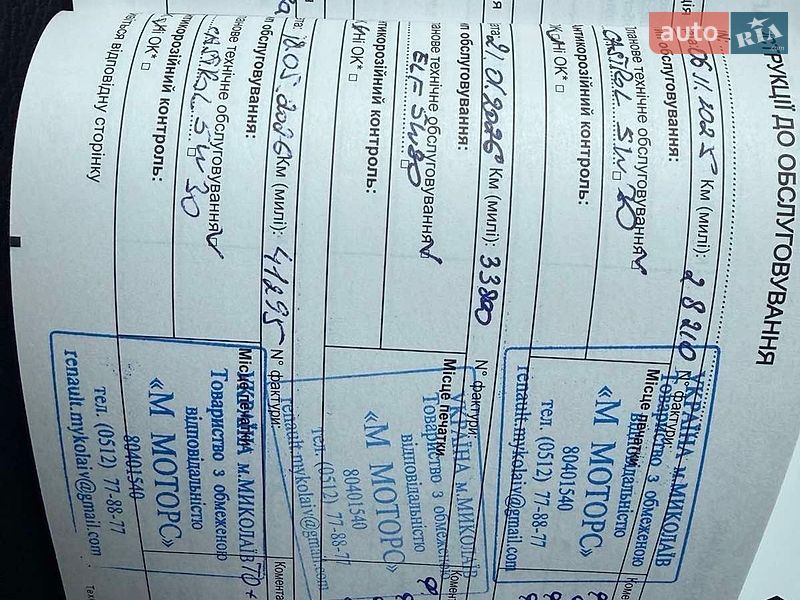 auto RIA.com
СТРУКЦІЇ ДО ОБСЛУГОВУВАННЯ
06.11.2025 Км (милі): 28210 N° фактури:
обслуговування:
Планове технічне обслуговування
CASTROL 5W30
Місце печатки
УКРАЇНА м.МИКОЛАЇВ
Товариство з обмеженою
відповідальністю
«М МОТОРС»
80401540
тел. (0512) 77-88-77
renault.mykolaiv@gmail.com
нтикорозійний контроль:
ОК*
21.01.2026 Км (милі): 33800 N° фактури:
ип обслуговування:
ланове технічне обслуговування
ELF 5W30
Місце печатки
УКРАЇНА м.МИКОЛАЇВ
Товариство з обмеженою
відповідальністю
«М МОТОРС»
80401540
тел. (0512) 77-88-77
renault.mykolaiv@gmail.com
тикорозійний контроль:
ні ОК*
та: 18.05.2026 Км (милі): 41295 N° фактури:
п обслуговування:
ланове технічне обслуговування
CASTROL 5W30
Місце печатки
м.МИКОЛАЇВ
Товариство з обмеженою
відповідальністю
«М МОТОРС»
80401540
тел. (0512) 77-88-77
renault.mykolaiv@gmail.com
тикорозійний контроль:
ні ОК*
Комента
ться відповідну сторінку